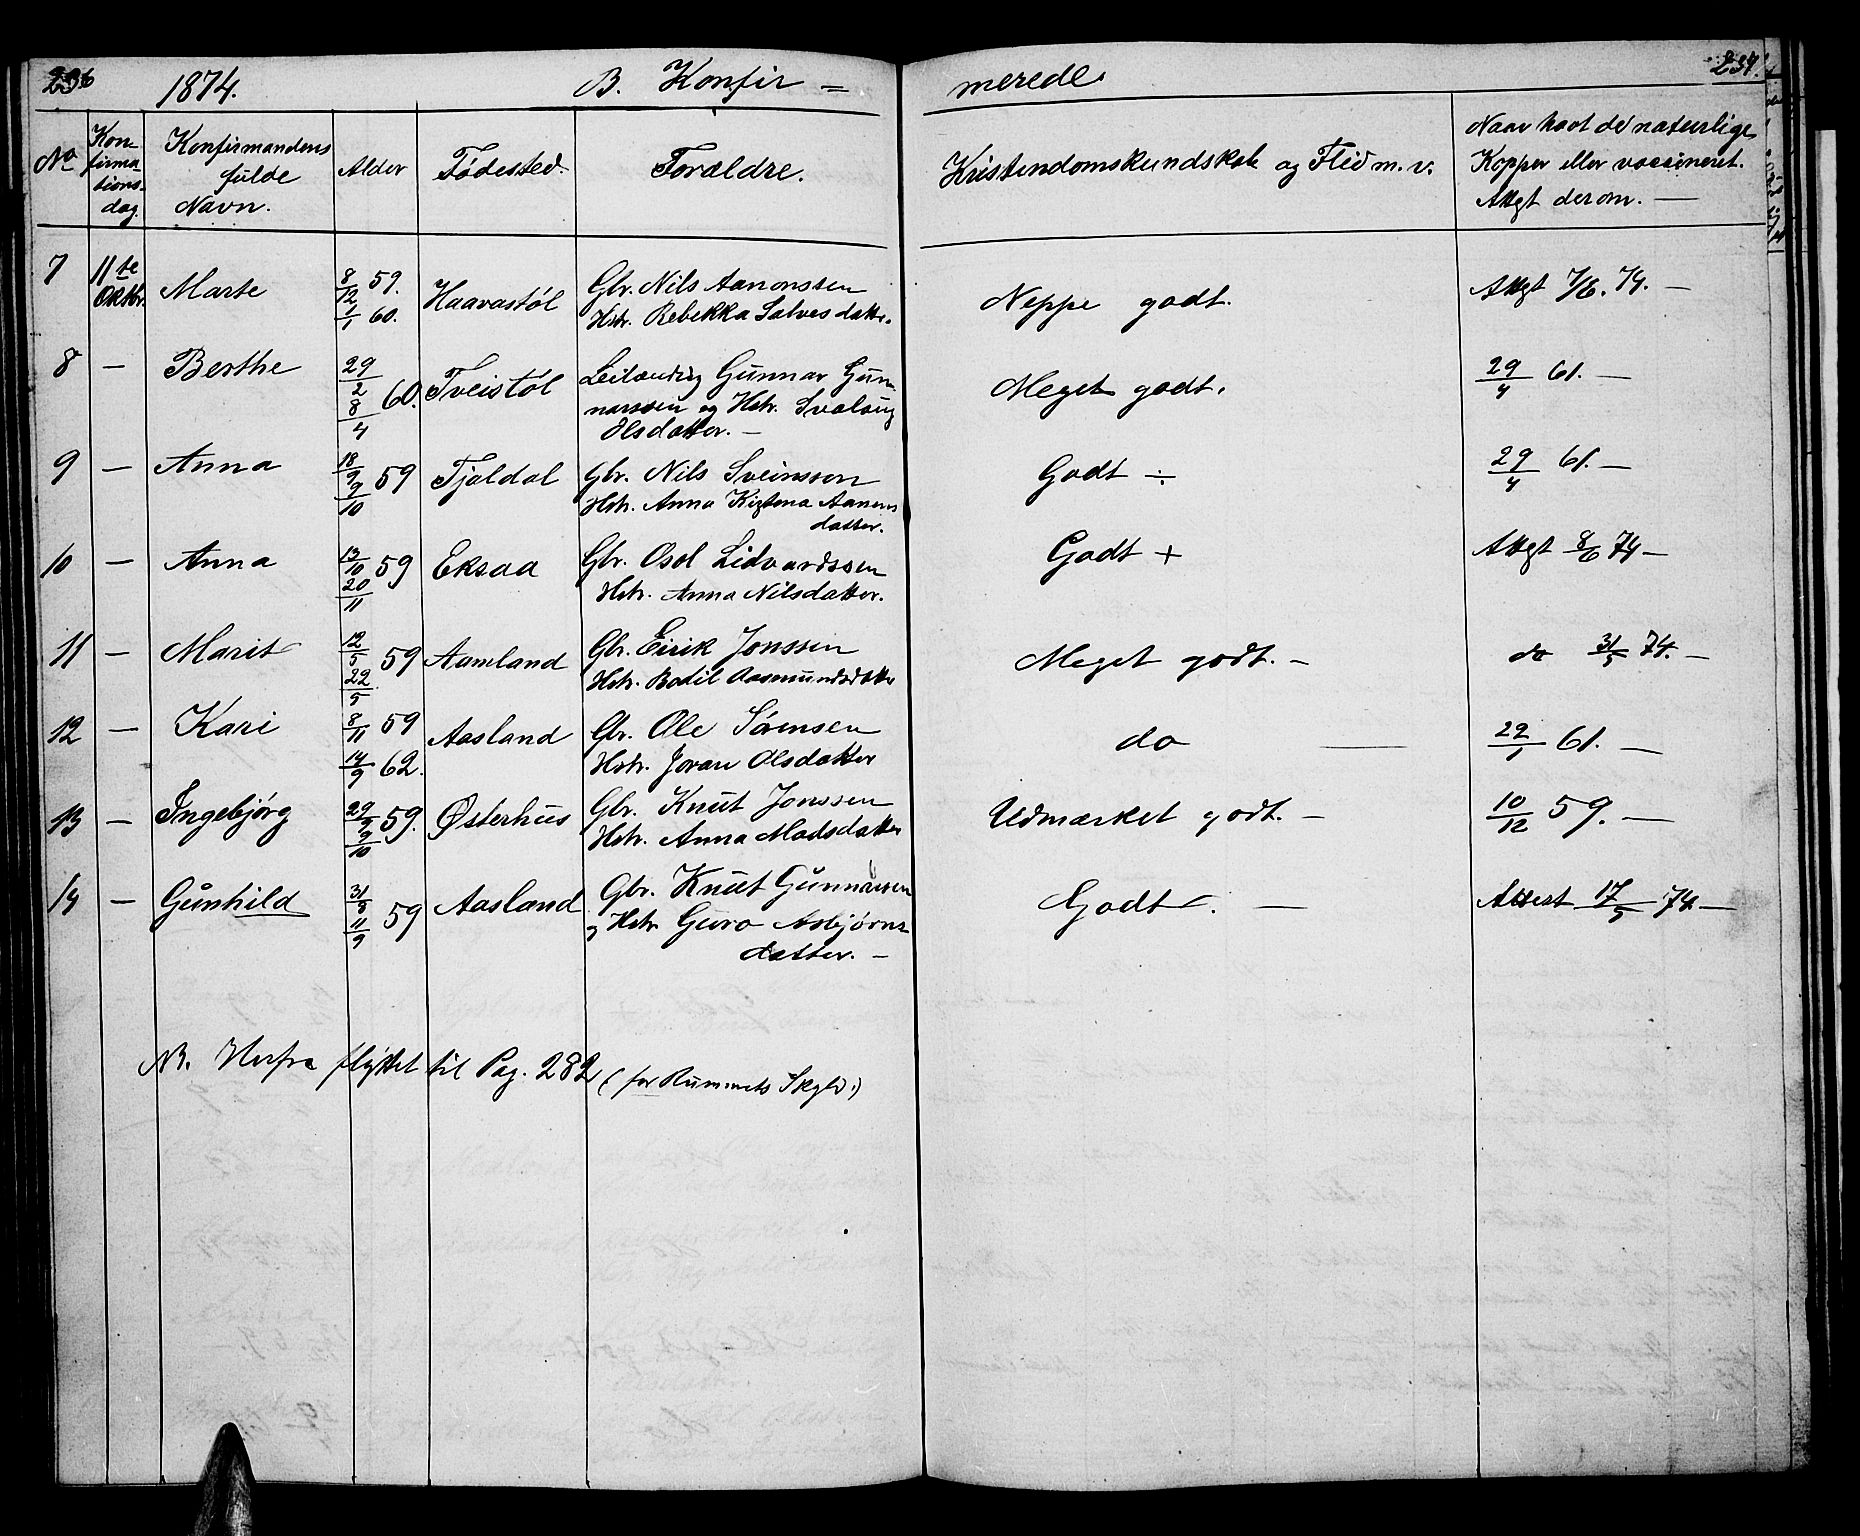 236
1874.
B. Konfir =
merede
237.
No
Kon-
firma-
tions-
dag.
Konfirmandens
fulde
Navn.
Alder
Fødested.
Forældre.
Kristendomskundskab og Flid m. v.
Naar havt de naturlige
Kopper eller vaccineret.
Attest derom. —
7 11te Oktbr. Marte 8/12 59. 7/1 60. Haavastøl Gbr. Nils Aanonssen
Hstr. Rebekka Salvesdatter. Neppe godt. Attest 7/6. 74. —
8 — Berthe 29/2 8/4 60. Tveistøl Leilænding Gunnar Gun-
narssen og Hstr. Svalaug
Olsdatter. — Meget godt. 29/4 61. —
9 — Anna 18/9 9/10 59 Tjaldal Gbr. Nils Sveinsson
Hstr. Anna Kirstena Aanons
datter. Godt ÷ 29/4 61. —
10 — Anna 13/10 20/11 59 Eksaa Gbr. Osol Lidvardssen
Hstr. Anna Nilsdatter. Godt + Attest 8/6 74 —
11 — Marit 12/5 22/5 59 Aamland Gbr. Eirik Jonssen
Hstr. Bodil Aasmundsdatter Meget godt. — do 31/5 74. —
12 — Kari 8/11 59 14/9 62. Aasland Gbr. Ole Sørensen
Hstr. Joran Olsdatter do — 22/1 61. —
13 — Ingebjørg 29/9 9/10 59. Østerhus Gbr. Knut Jonssen
Hstr. Anna Madsdatter Udmærket godt. — 10/12 59. —
14 — Gunhild 31/8 11/9 59 Aasland Gbr. Knut Gunnarssen
og Hstr Guro Asbjørns-
datter. — Godt. — Attest 17/5 74 —
NB. Herfra flyttet til Pag. 282 (for Rummets Skyld:)